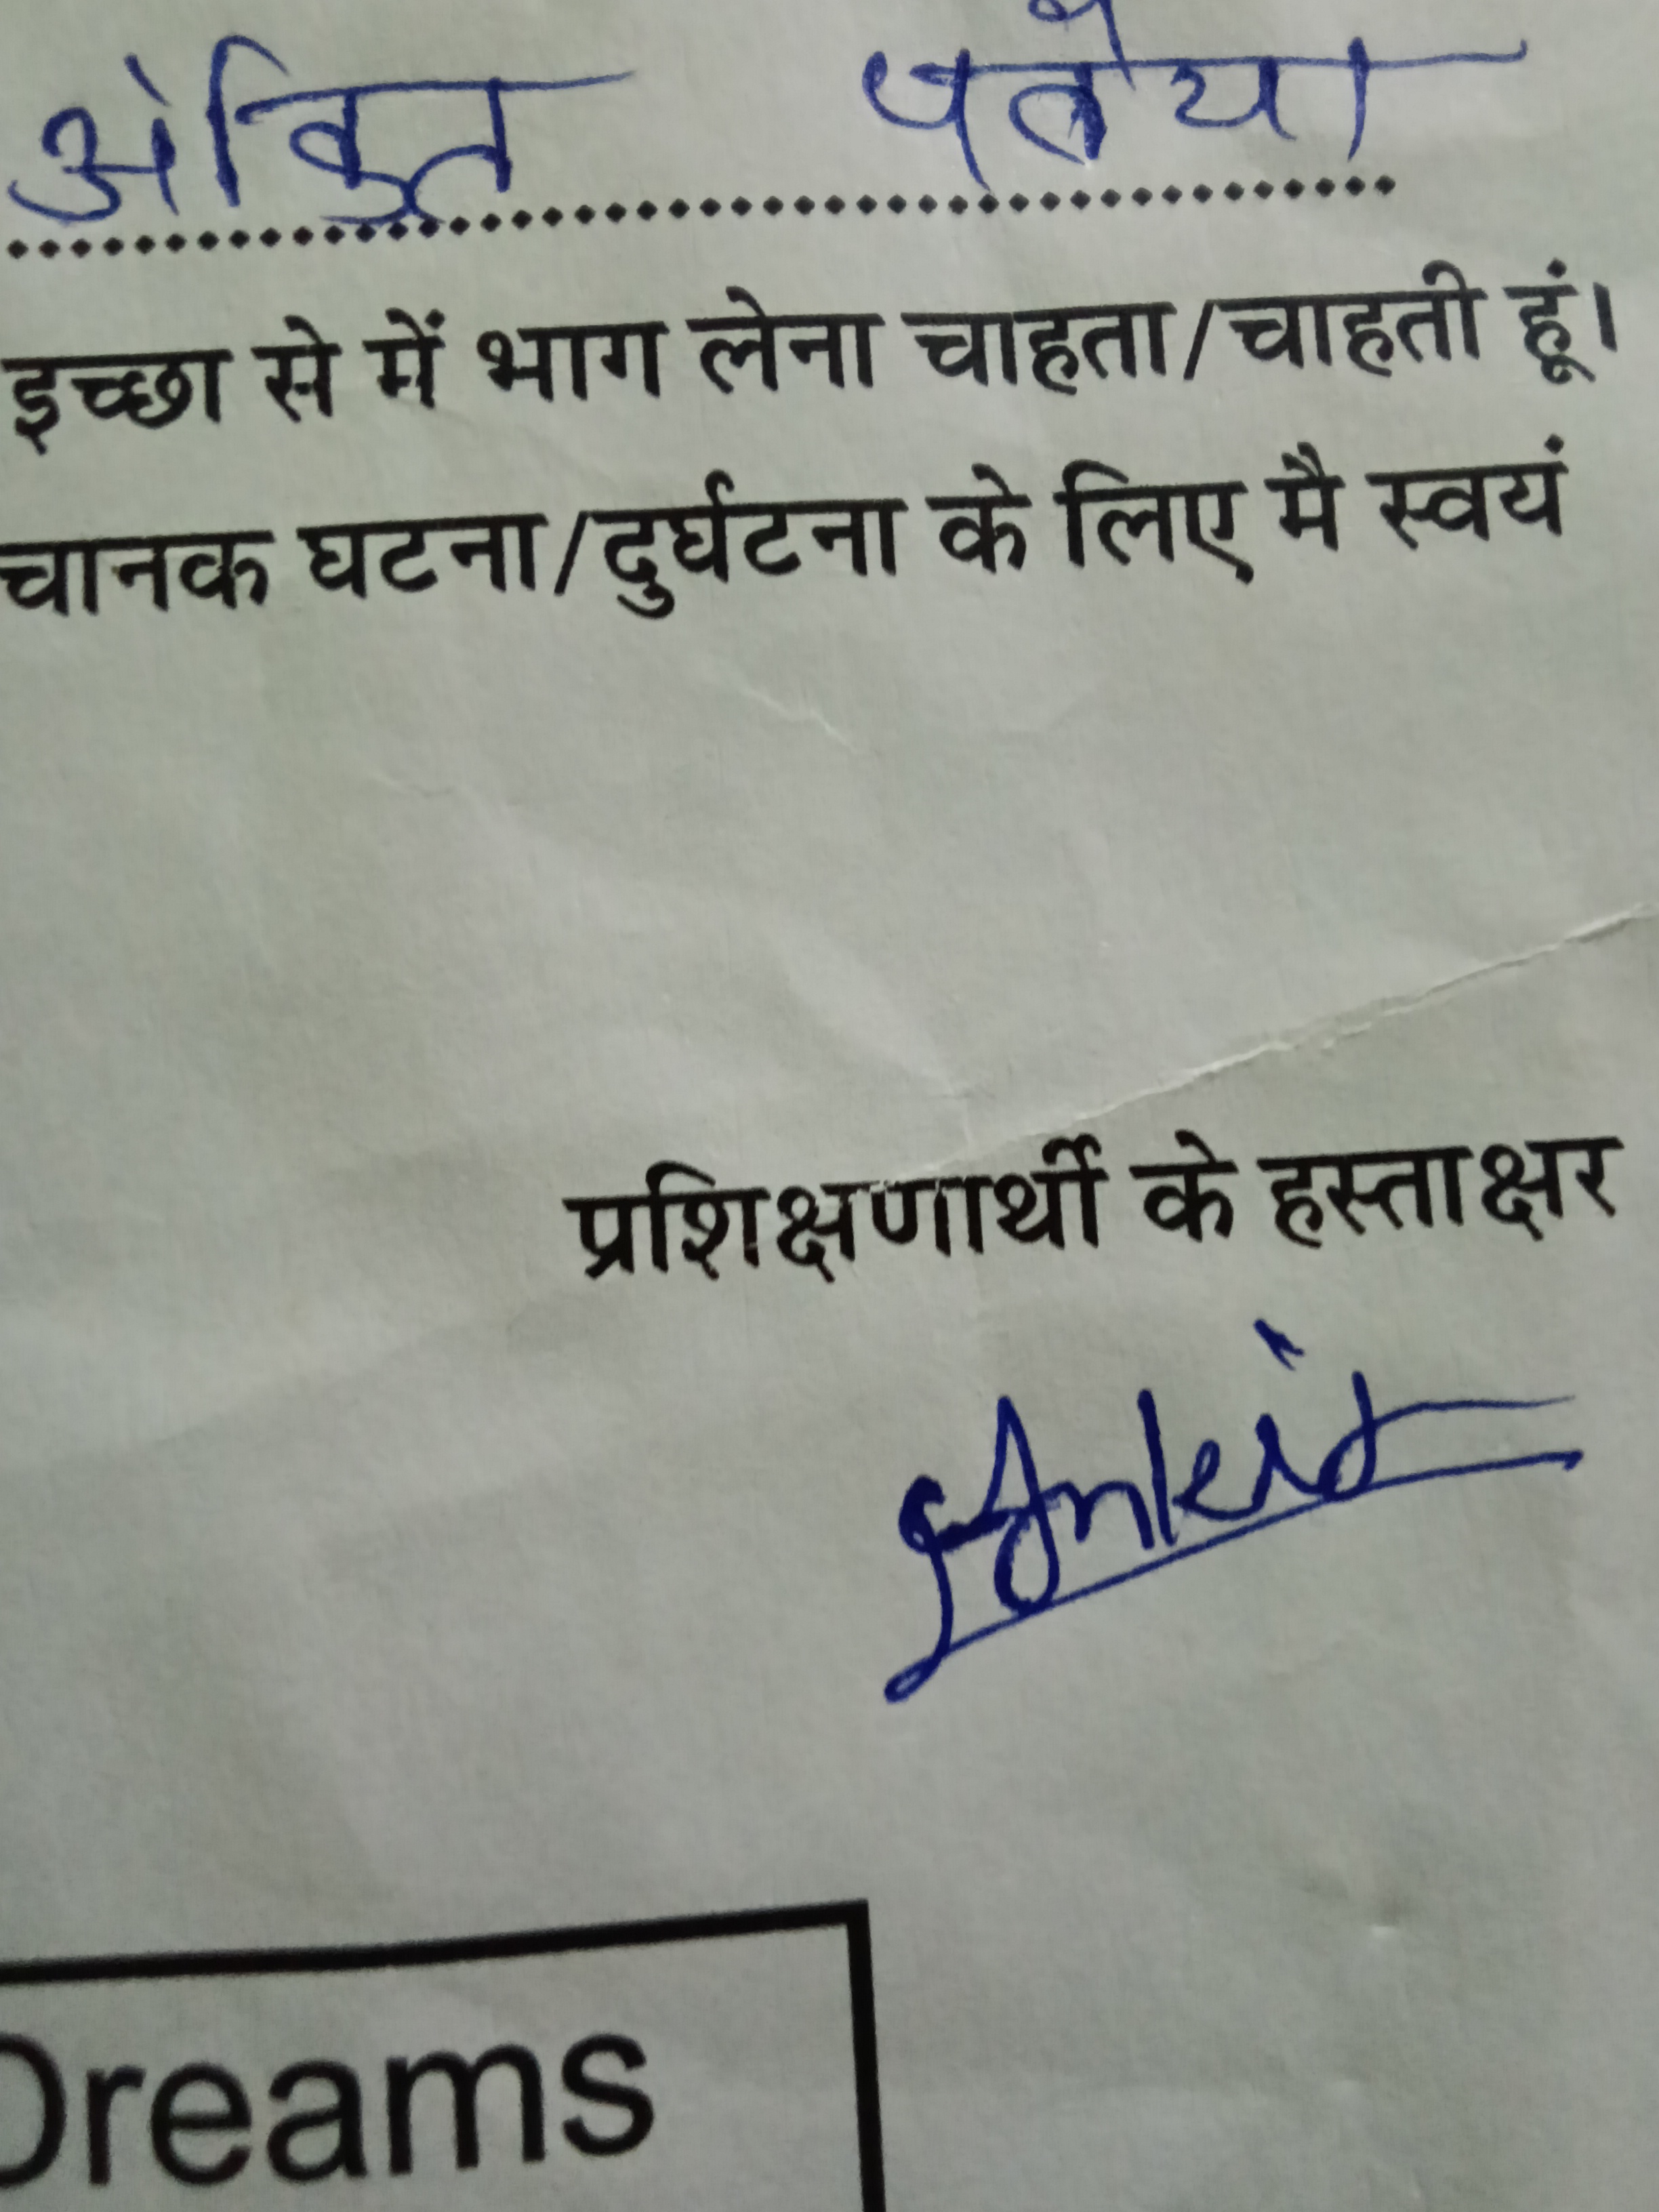 अंकित पवैया
इच्छा से में भाग लेना चाहता/चाहती हूं।
चानक घटना/दुर्घटना के लिए मै स्वयं
प्रशिक्षणार्थी के हस्ताक्षर
Ankit
Dreams